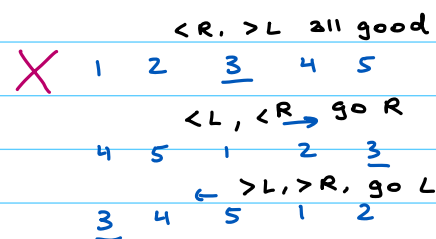 <R, >L all good
X 1 2 3 4 5
<L, <R → go R
4 5 1 2 3
← >L, >R, go L
3 4 5 1 2